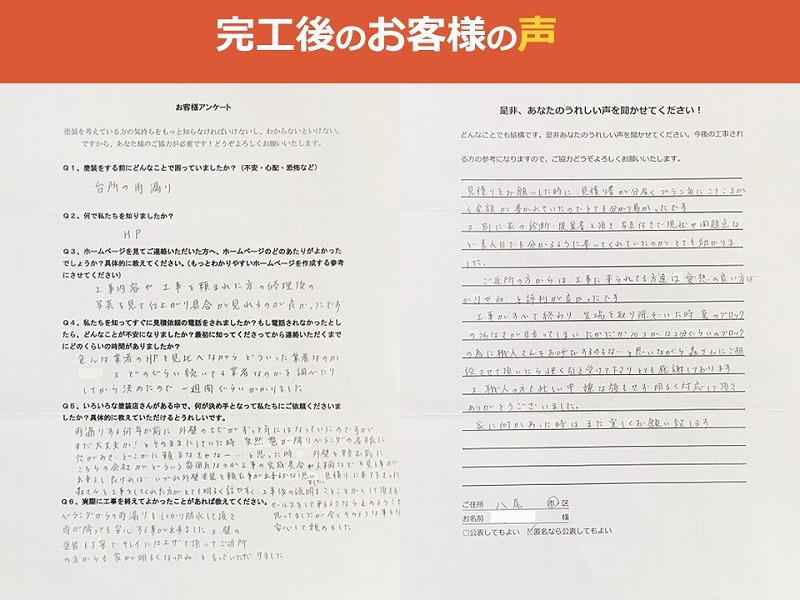 完工後のお客様の声
お客様アンケート
塗装を考えている方の気持ちをもっと知らなければいけないし、わからないといけない。
ですから、あなた様のご協力が必要です！どうぞよろしくお願いいたします。
Q1、塗装をする前にどんなことで困っていましたか？（不安・心配・恐怖など）
台所の雨漏り
Q2、何で私たちを知りましたか？
HP
Q3、ホームページを見てご連絡いただいた方へ、ホームページのどのあたりがよかった
でしょうか？具体的に教えてください。（もっとわかりやすいホームページを作成する参考
にさせてください）
工事内容や工事を頼まれた方の修理後の
写真を見て仕上がり具合が見れるのが良かったです
Q4、私たちを知ってすぐに見積依頼の電話をされましたか？もし電話されなかったとし
たら、どんなことが不安になりましたか？最初に知ってくださってから連絡いただくまで
にどのくらいの時間がありましたか？
色んな業者のHPを見比べながら どういった業者なのか
又どのぐらい続いてる業者なのかを調べたり
してから決めたので一週間ぐらいかかりました
Q5、いろいろな塗装店さんがある中で、何が決め手となって私たちにご依頼くださいま
したか？具体的に教えていただけるとうれしいです。
雨漏りする何年か前に外壁のヒビがずっと気にはなっていたのですが、
まだ大丈夫か！とそのままにしていた時 突然 雹が降りベランダの屋根に
穴があき、どこかに頼まなきゃな…と思った時 外壁を頼む前に
Q6、実際に工事を終えてよかったことがあれば教えてください。
ベランダからの雨漏りもしっかり防水して頂き
雨が降っても安心する事が出来ました。又壁の
塗装も丁寧でキレイに仕上げて頂いてご近所
の方からも家が明るくなったね と言っていただけました
安心して頼めました。
是非、あなたのうれしい声を聞かせてください！
どんなことでも結構です。是非あなたのうれしい声を聞かせてください。今後の工事され
る方の参考になりますので、ご協力どうぞよろしくお願いします。
見積りをお願いした時に、見積り書が分厚くプラン毎にことこまか
く金額が書かれていたのでとても分かり易かったです
又、別に家の診断・提案書を頂き写真付きで現状や問題点な
ど素人目でも分かるように書いてくれていたのがとても助かりま
した。
ご近所の方からは、工事に来られてる方達は愛想の良い方ば
かりやね、と評判が良かったです
工事がすべて終わり 足場を取り除いた時 家のブロック
の汚なさが目立ってしまい たかだか10コか12コ分ぐらいのブロック
の為に職人さんをお呼びするのもな…と思いながら森さんにご相
談させて頂いたら快く引き受けて下さりとても感謝しております
又、職人の方も忙しい中 嫌な顔もせず明るく対応して頂き
ありがとうございました。
家に何かあった時はまた宜しくお願い致します
ご住所 八尾 市・区
お名前 様
□公表してもよい ☑匿名なら公表してもよい